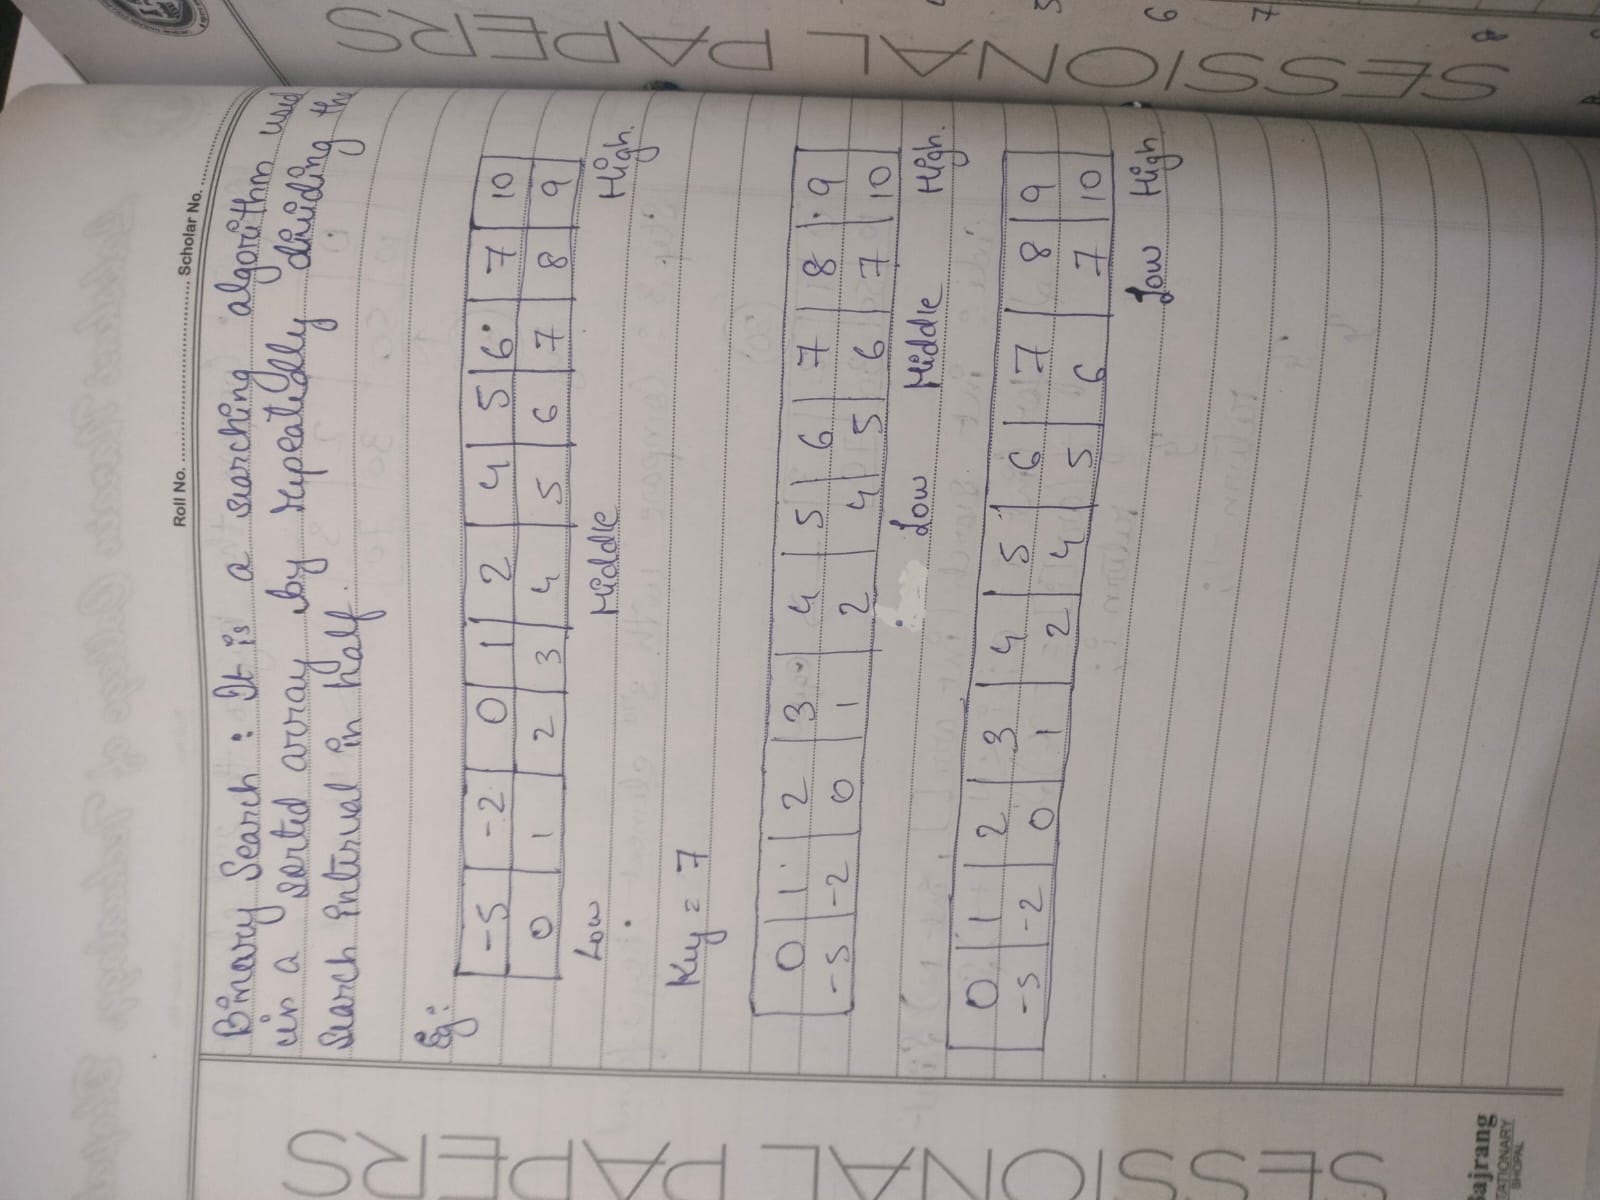 Roll No. ........................ Scholar No. ................
Binary Search : It is a searching algorithm used
in a sorted array by repeatedly dividing the
search interval in half.
Eg:
-5 -2 0 1 2 4 5 6 7 10
0 1 2 3 4 5 6 7 8 9
Low Middle High.
Key = 7
0 1 2 3 4 5 6 7 8 9
-5 -2 0 1 2 4 5 6 7 10
Low Middle High.
0 1 2 3 4 5 6 7 8 9
-5 -2 0 1 2 4 5 6 7 10
Low High
SESSIONAL PAPERS
Bajrang
STATIONARY
BHOPAL
SESSIONAL PAPERS
6
7